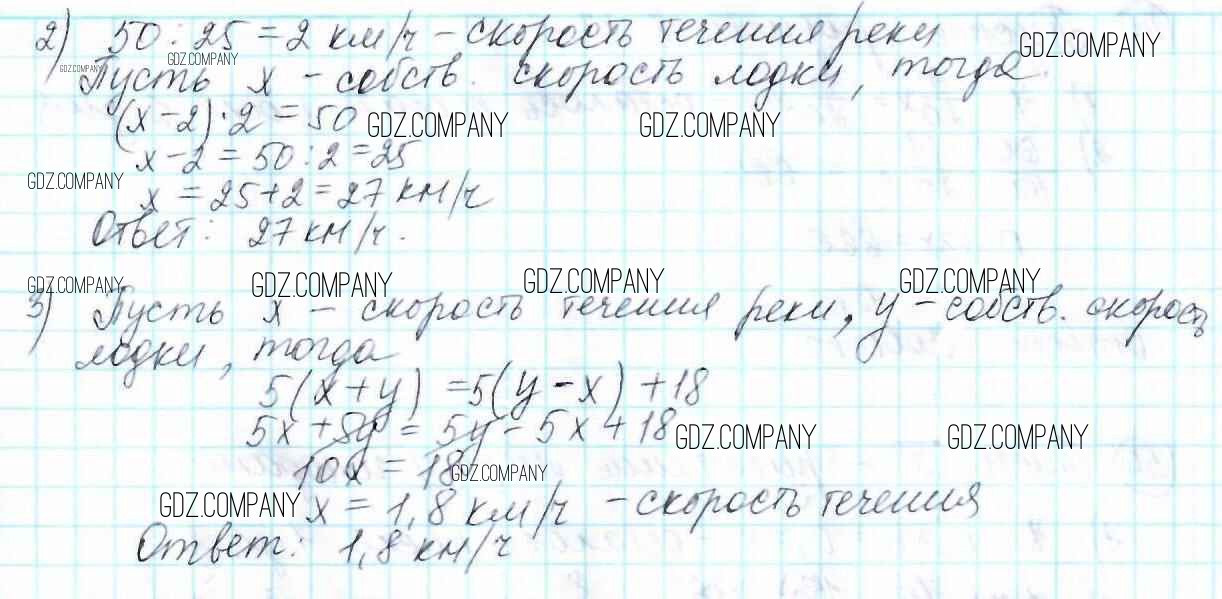 2) 50 : 25 = 2 км/ч – скорость течения реки
GDZ.COMPANY
GDZ.COMPANY
GDZ.COMPANY
Пусть x – собств. скорость лодки, тогда
(x – 2) · 2 = 50
GDZ.COMPANY
GDZ.COMPANY
x – 2 = 50 : 2 = 25
GDZ.COMPANY
x = 25 + 2 = 27 км/ч
Ответ: 27 км/ч.
GDZ.COMPANY
GDZ.COMPANY
GDZ.COMPANY
GDZ.COMPANY
3) Пусть x – скорость течения реки, y – собств. скорость
лодки, тогда
5(x + y) = 5(y – x) + 18
5x + 5y = 5y – 5x + 18
GDZ.COMPANY
GDZ.COMPANY
10x = 18
GDZ.COMPANY
GDZ.COMPANY
x = 1,8 км/ч – скорость течения
Ответ: 1,8 км/ч